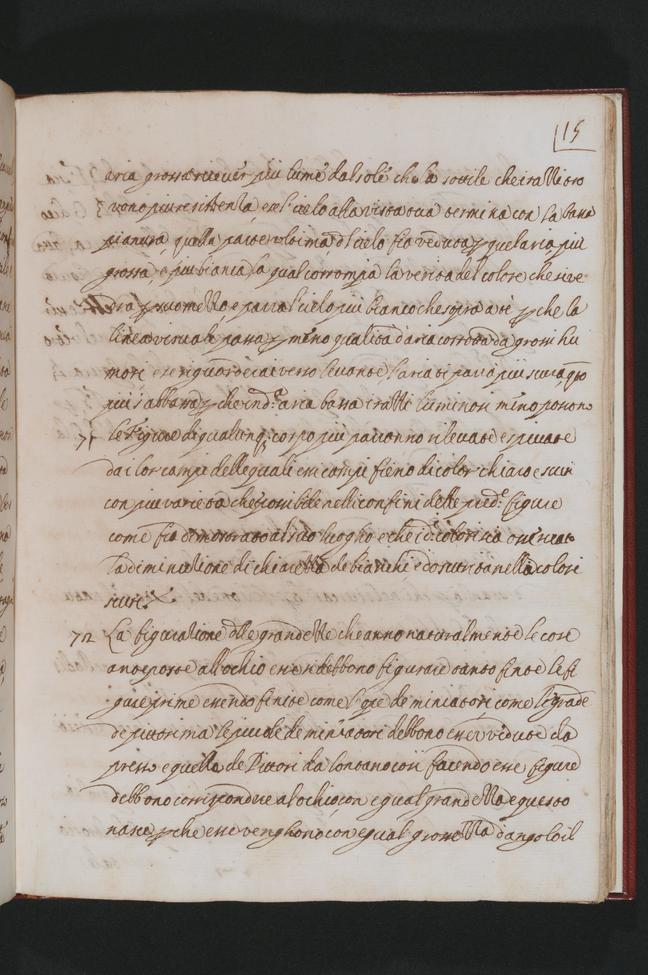 15
aria grossa ricever più lume dal sole che la sotile che i razzi tro
vono più resistenza, e se'l cielo alla vista tua termina con la bassa
pianura, quella parte ultima del cielo fia veduta per quel aria più
grossa, e più bianca, la qual corromperà la verità del colore che si ve
drà per suo mezzo e parrà 'l cielo più bianco che sopra a te per che la
linea visuale passa per meno qualità d'aria corrotta da grossi hu
mori e se riguarderai verso levante l'aria ti parrà più scura quo
più s'abbassa per che in d.a aria bassa i razzi luminosi meno passono
71 le figure di qualunq; corpo più parranno rilevate e spiccate
da i lor campi delle quali essi campi fieno di color chiari e scuri
con più varietà che possibile nelli confini delle pred.e figure
come fia demostrato al suo luogho e che i d. colori sia osservato
la diminutione di chiarezza de bianchi, e d'oscurità nelli colori
scuri.
72 La figuratione delle grandezze che anno naturalmente le cose
anteposte all'ochio essi si debbono figurare tanto finite le fi
gure prime essendo finite come l'opre de miniatori come le grade
de pittori ma le picciole de miniatori debbono esser vedute da
presso e quella de Pittori da lontano così facendo esse figure
debbono corrispondere al ochio con egual grandezza e questo
nasce per che esse venghono con egual grossezza d'angolo il